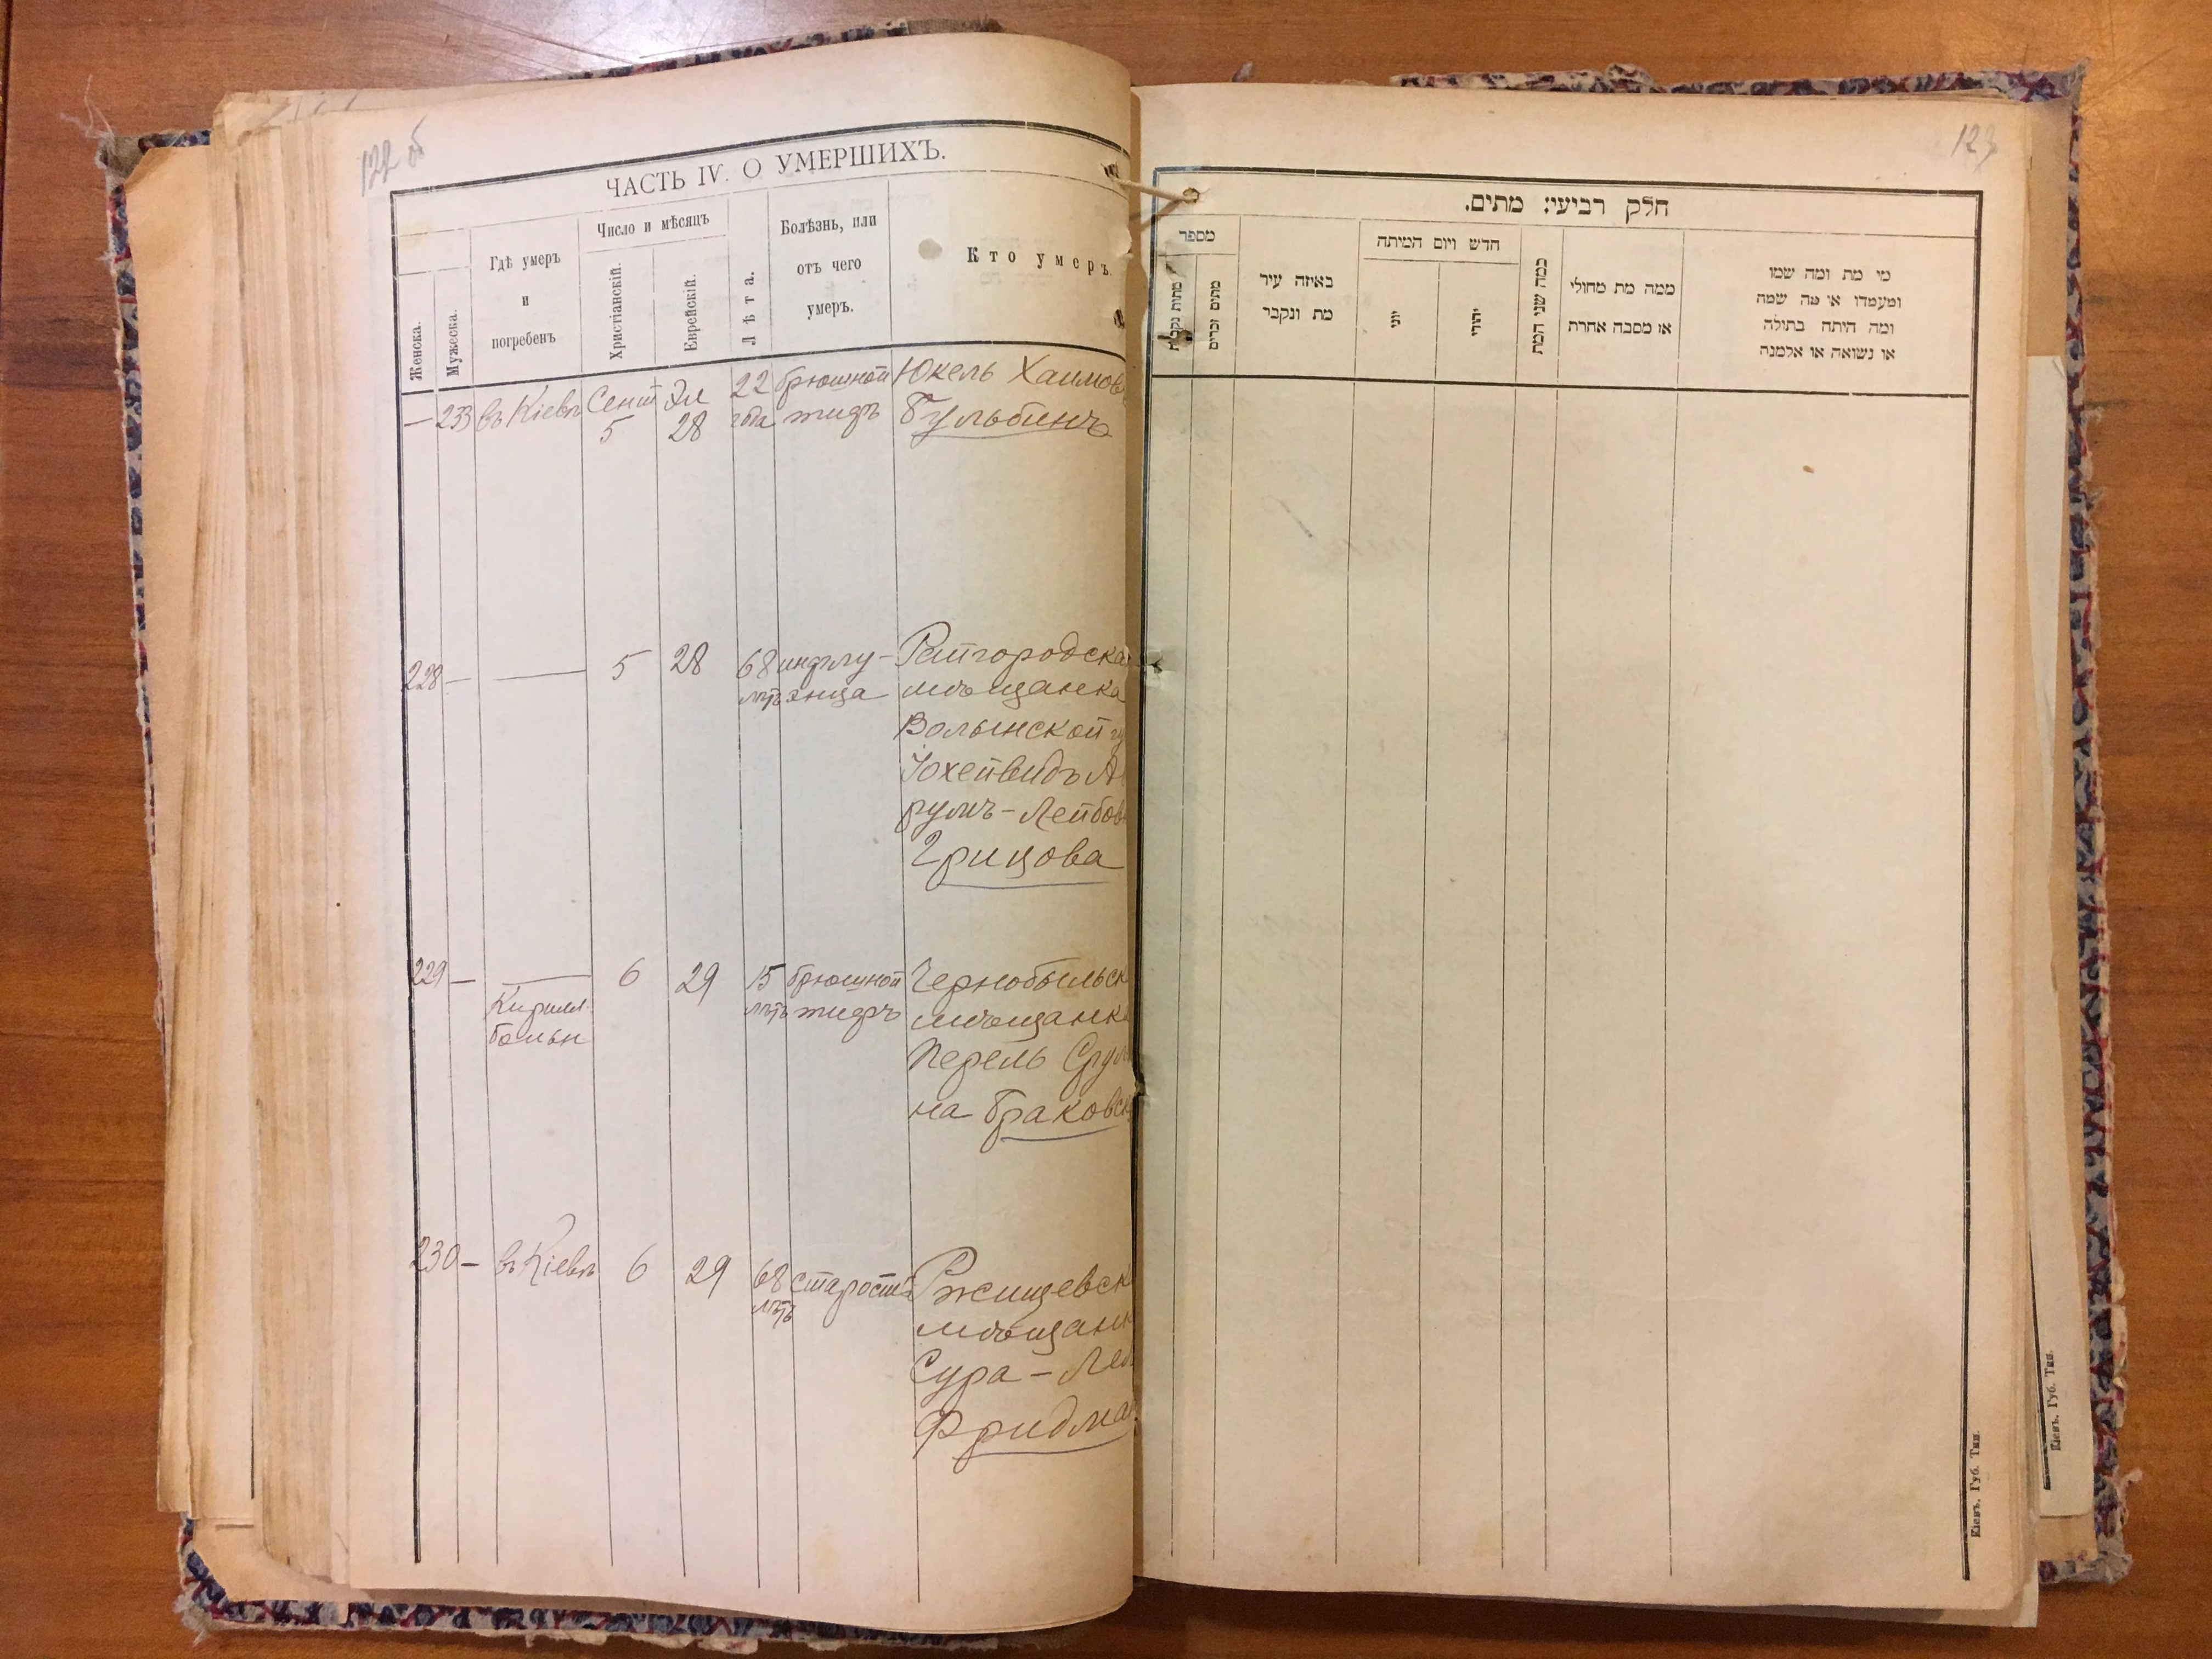 122 об
ЧАСТЬ IV. О УМЕРШИХЪ.
Женска.
Мужеска.
Гдѣ умеръ
и
погребенъ
Число и мѣсяцъ
Христіанскій.
Еврейскій.
Лѣта.
Болѣзнь, или
отъ чего
умеръ.
Кто умеръ.
— 233 въ Кіевѣ Сент Эл 22 брюшной Юкель Хаимов
5 28 года тифъ Гульбинъ
228 — — 5 28 68 инфлу- Райгородска
лѣтъ энца мѣщанка
Волынской гу
Іохейвидъ А
румъ-Лейбов
Грицова
229 — — 6 29 15 брюшной Чернобыльск
Кирилл. лѣтъ тифъ мѣщанка
больн Перель Срул
на Браковск
230 — въ Кіевѣ 6 29 68 старость Ржищевск
лѣтъ мѣщанк
Сура - Ле
Фридма
123
חלק רביעי: מתים.
מספר
מתות נקבות
מתים זכרים
באיזה עיר
מת ונקבר
חדש ויום המיתה
יוני
יהודי
כמה שני המת
ממה מת מחולי
או מסבה אחרת
מי מת ומה שמו
ומעמדו או מה שמה
ומה היתה בתולה
או נשואה או אלמנה
Кіевъ. Губ. Тип.
Кіевъ. Губ. Тип.